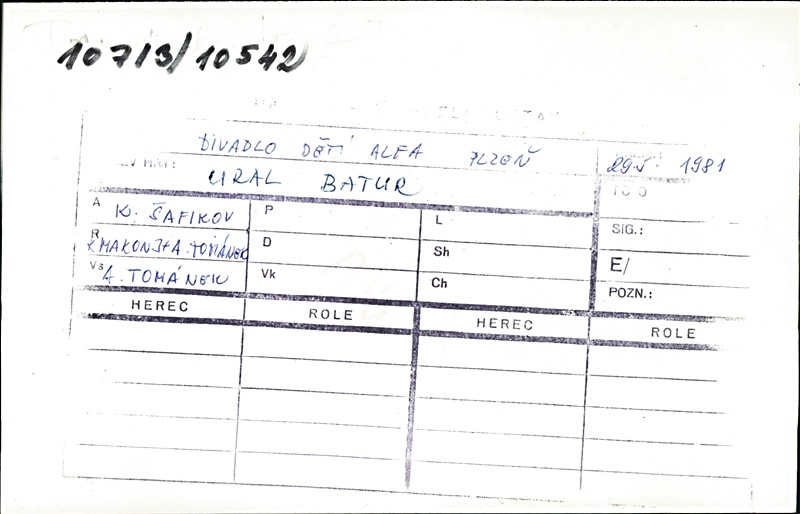 10713/10542
DIVADLO DĚTÍ ALFA PLZEŇ
1981
HRY:
URAL BATUR
A K. ŠAFIKOV
P
L
SIG.:
R K. MAKONJ + A. TOMÁNEK
D
Sh
E/
Vs A. TOMÁNEK
Vk
Ch
POZN.:
HEREC ROLE HEREC ROLE